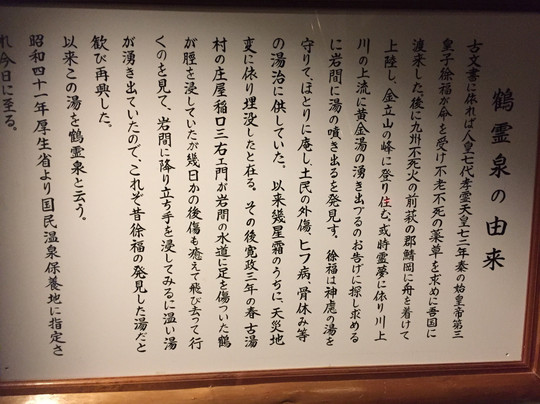 鶴霊泉の由来
古文書に依れば人皇七代孝霊天皇七二年秦の始皇帝第三
皇子徐福が命を受け不老不死の薬草を求めに吾国に
渡来した。後に九州不死火の前萩の郡鯖岡に舟を着けて
上陸し、金立山の峰に登り住む。或時霊夢に依り川上
川の上流に黄金湯の湧き出づるのお告げに探し求める
に岩間に湯の噴き出るを発見す。徐福は神慮の湯を
守りて、ほとりに庵し、土民の外傷、ヒフ病、骨休み等
の湯治に供していた。以来幾星霜のうちに、天災地
変に依り埋没したと在る。その後寛政三年の春古湯
村の庄屋稲口三右ェ門が岩間の水道に足を傷ついた鶴
が脛を浸していたが幾日かの後傷も癒えて飛び去って行
くのを見て、岩間に降り立ち手を浸してみるに温い湯
が湧き出ていたので、これぞ昔徐福の発見した湯だと
歓び再興した。
以来この湯を鶴霊泉と云う。
昭和四十一年厚生省より国民温泉保養地に指定さ
れ今日に至る。